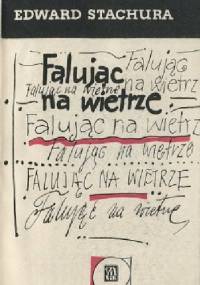 EDWARD STACHURA
Falując
Falując na wietrz
Falując na wietrze
na wietrze
Falując na wietrz
Falując na wietrze
FALUJĄC NA WIETRZE
Falując na wietrze